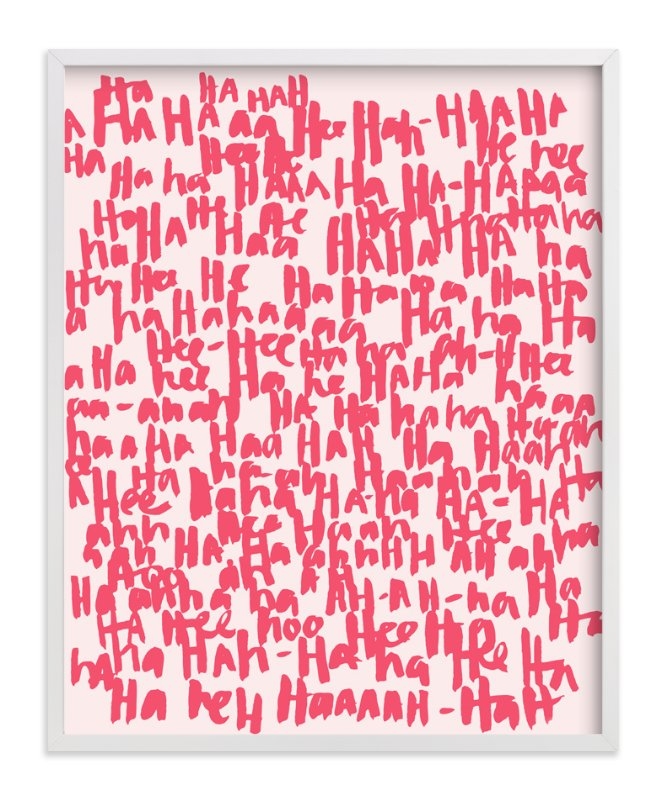 Ha HA HAH
A Ha HA aa Hee Hah-HAAHA
HA Hee He He hee
Ha ha HAAA Ha HA-HAAaa
Ha HA He He Ha Ha Ha ha
ha Haa HAHA HA ha
Ha Hee He Ha Ha a a Ha Ha
a ha Hahaaaaa Ha ha Ha
Hee-Hee Ha ha ah-HHee
a Ha hee Ha he HaHa ha
aa-ahah HA-Ha haha haaa
haa Ha Haa HaH Ha Haaah
Hee haha HA-ha HA-HA
ahh HA Hee Haah Hee ha
Ha ahhHH AH ah
Ha ahha ha AH-AH-ha Ha
HA Hee hoo Hee Ha Ha
hA ha Hah-Ha-ha He Ha
Ha heH HaaaAH-HaH